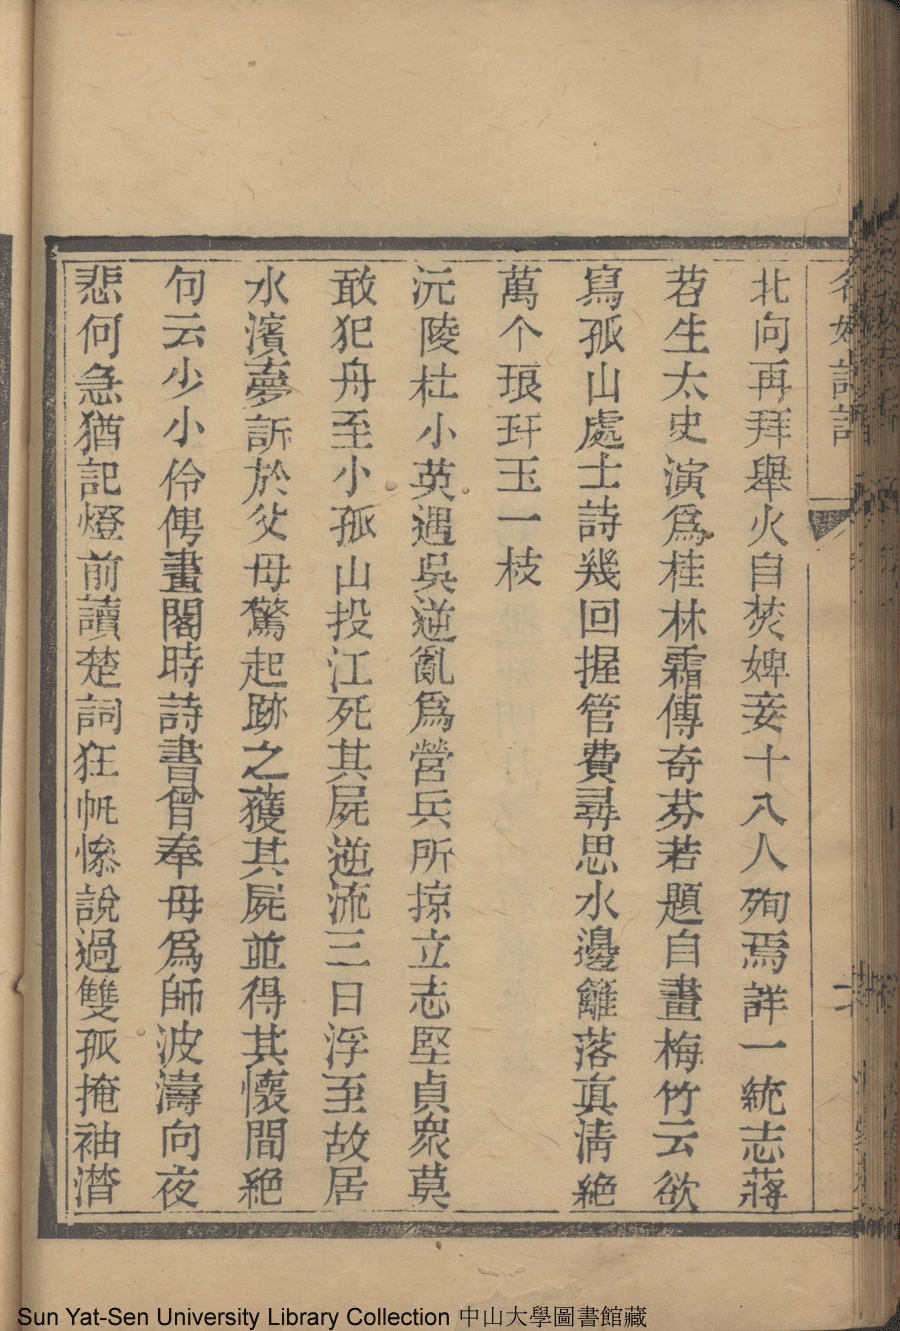 名媛詩話
北向再拜舉火自焚婢妾十八人殉焉詳一統志蔣
苕生太史演爲桂林霜傳奇芬若題自畫梅竹云欲
寫孤山處士詩幾回握管費尋思水邊籬落真淸絶
萬个琅玕玉一枝
沅陵杜小英遇吳逆亂爲營兵所掠立志堅貞衆莫
敢犯舟至小孤山投江死其屍逆流三日浮至故居
水濱夢訴於父母驚起跡之獲其屍並得其懷間絶
句云少小伶俜畫閣時詩書曾奉母爲師波濤向夜
悲何急猶記燈前讀楚詞狂帆慘說過雙孤掩袖潸
Sun Yat-Sen University Library Collection 中山大學圖書館藏